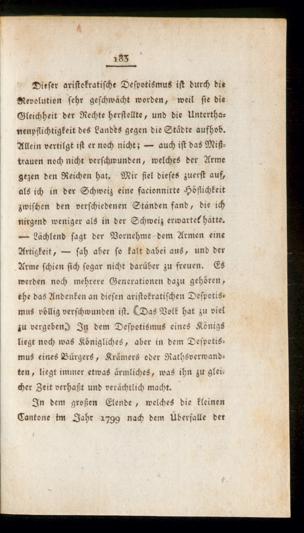 183
Dieser aristokratische Despotismus ist durch die
Revolution sehr geschwächt worden, weil sie die
Gleichheit der Rechte herstellte, und die Untertha-
nenpflichtigkeit des Landes gegen die Städte aufhob.
Allein vertilgt ist er noch nicht; — auch ist das Miß-
trauen noch nicht verschwunden, welches der Arme
gegen den Reichen hat. Mir fiel dieses zuerst auf,
als ich in der Schweiz eine facionnirte Höflichkeit
zwischen den verschiedenen Ständen fand, die ich
nirgend weniger als in der Schweiz erwartet hätte.
— Lächlend sagt der Vornehme dem Armen eine
Artigkeit, — sah aber so kalt dabei aus, und der
Arme schien sich sogar nicht darüber zu freuen. Es
werden noch mehrere Generationen dazu gehören,
ehe das Andenken an diesen aristokratischen Despotis-
mus völlig verschwunden ist. (Das Volk hat zu viel
zu vergeben.) In dem Despotismus eines Königs
liegt noch was Königliches, aber in dem Despotis-
mus eines Bürgers, Krämers oder Rathsverwand-
ten, liegt immer etwas ärmliches, was ihn zu glei-
cher Zeit verhaßt und verächtlich macht.
In dem großen Elende, welches die kleinen
Cantone im Jahr 1799 nach dem Überfalle der